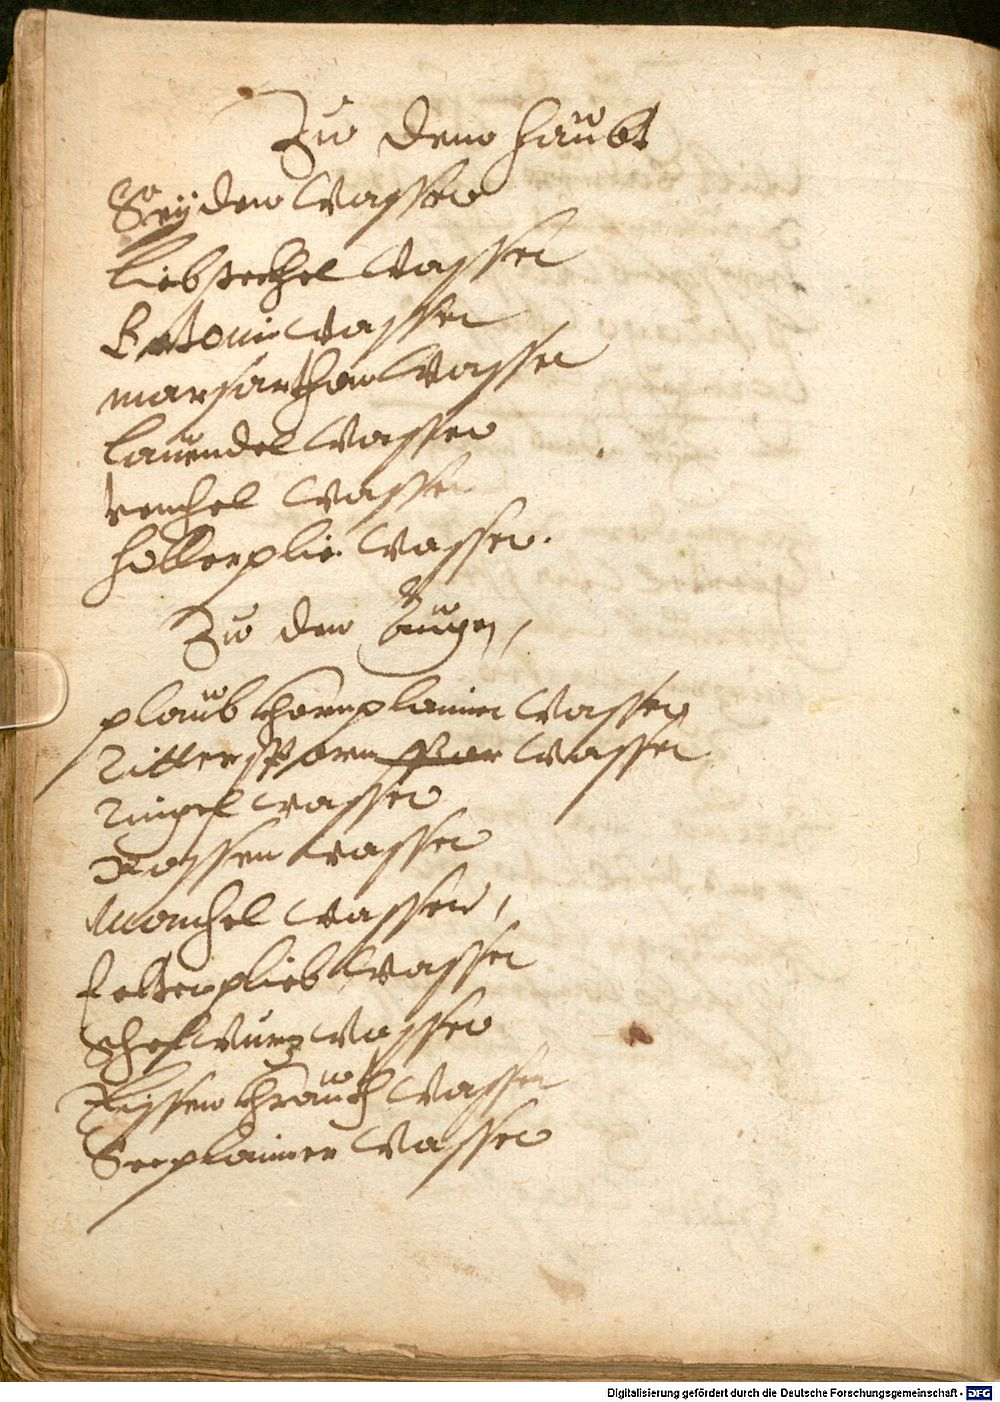 Zu dem haubt
Seyden Wasser
Liebstechel Wasser
Betoni Wasser
marharthen Wasser
Lauendel Wasser
venchel Wasser
hollerplie Wasser.
Zu den Augen,
plaub khornplaimen Wasser
Rittersporn Wasser
Ringel wasser
Rossen wasser
Wasser,
Wasser
Schelwurz Wasser
khrauth Wasser
Seeplaimen Wasser
Digitalisierung gefördert durch die Deutsche Forschungsgemeinschaft - DFG